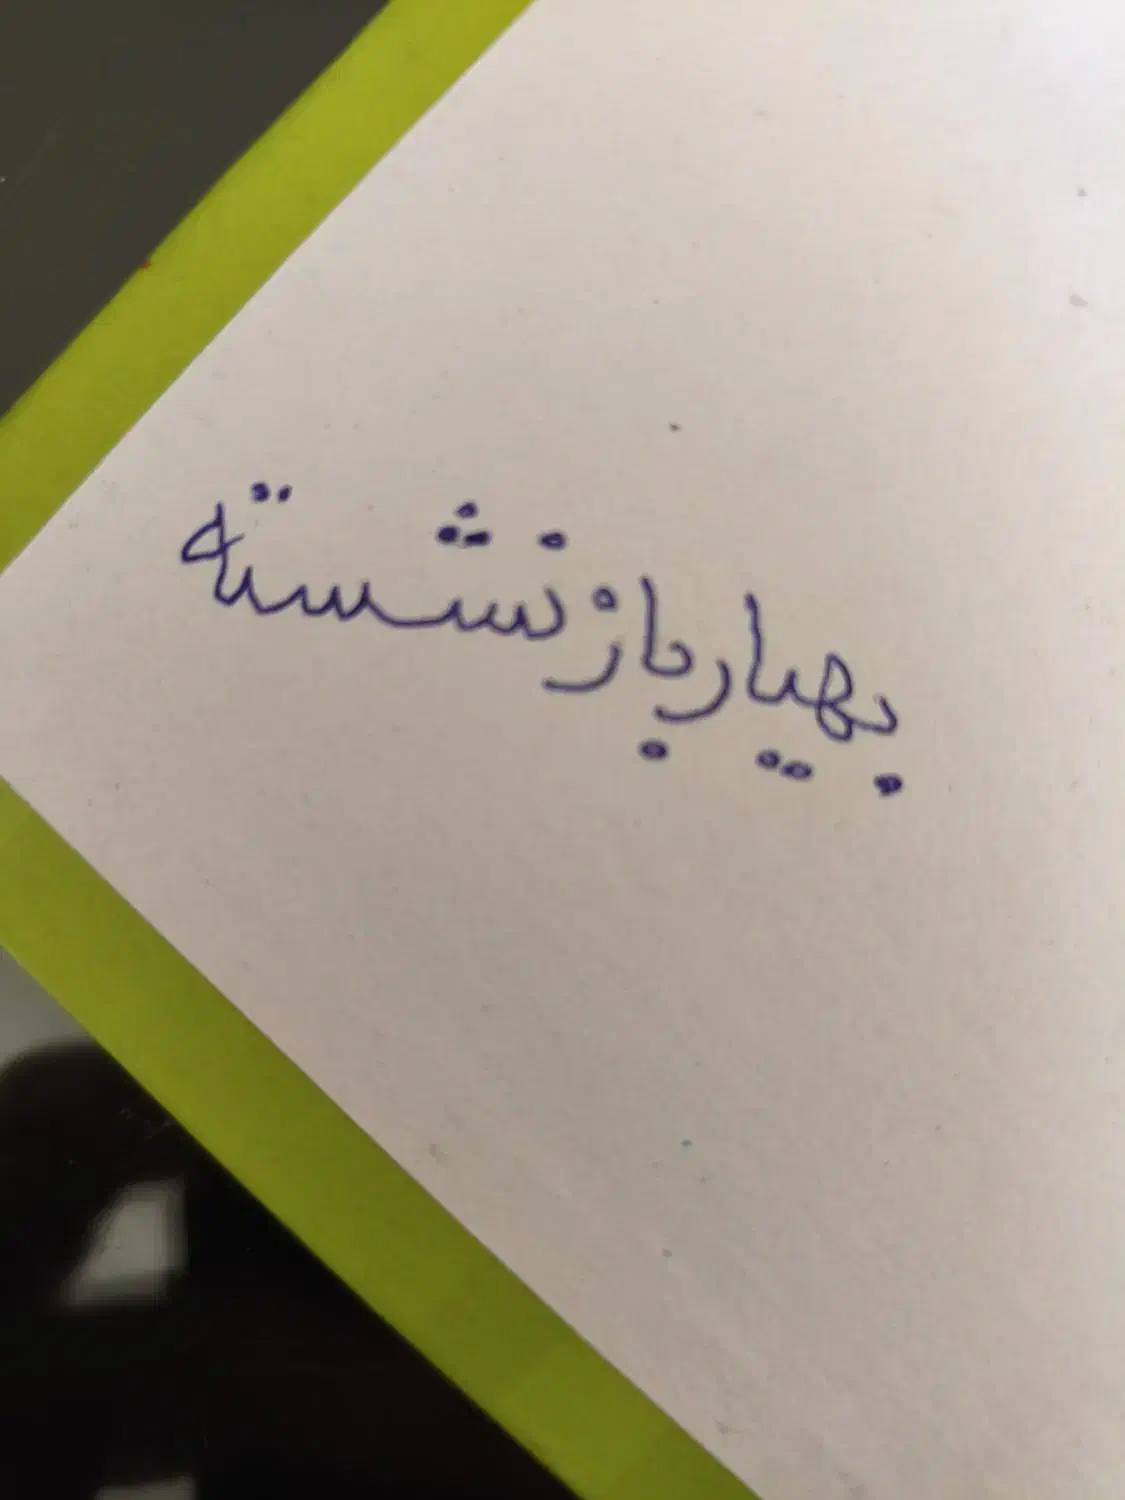 بهیار بازنشسته